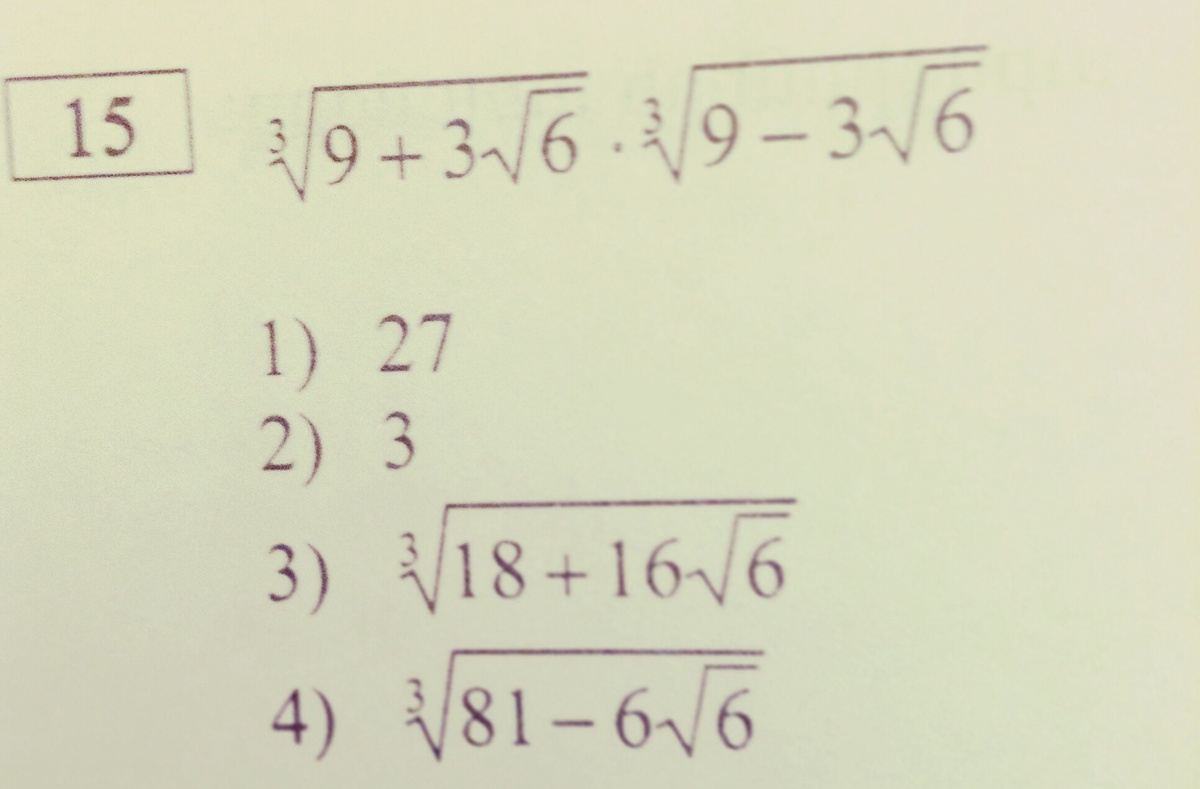 15 ∛(9 + 3√6) · ∛(9 − 3√6)
1) 27
2) 3
3) ∛(18 + 16√6)
4) ∛(81 − 6√6)